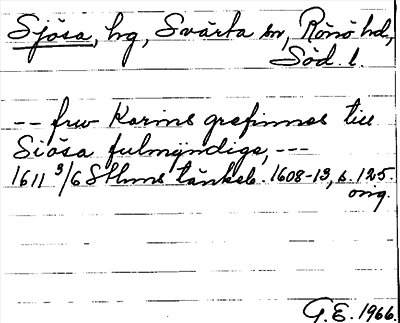 Sjösa, hg, Svärta sn, Rönö hd,
Söd. l.
-- frw Karins grefinnes till
Siösa fulmyndige, ---
1611 3/6 Sthms tänkeb. 1608-13, s. 125.
orig.
G.E. 1966.